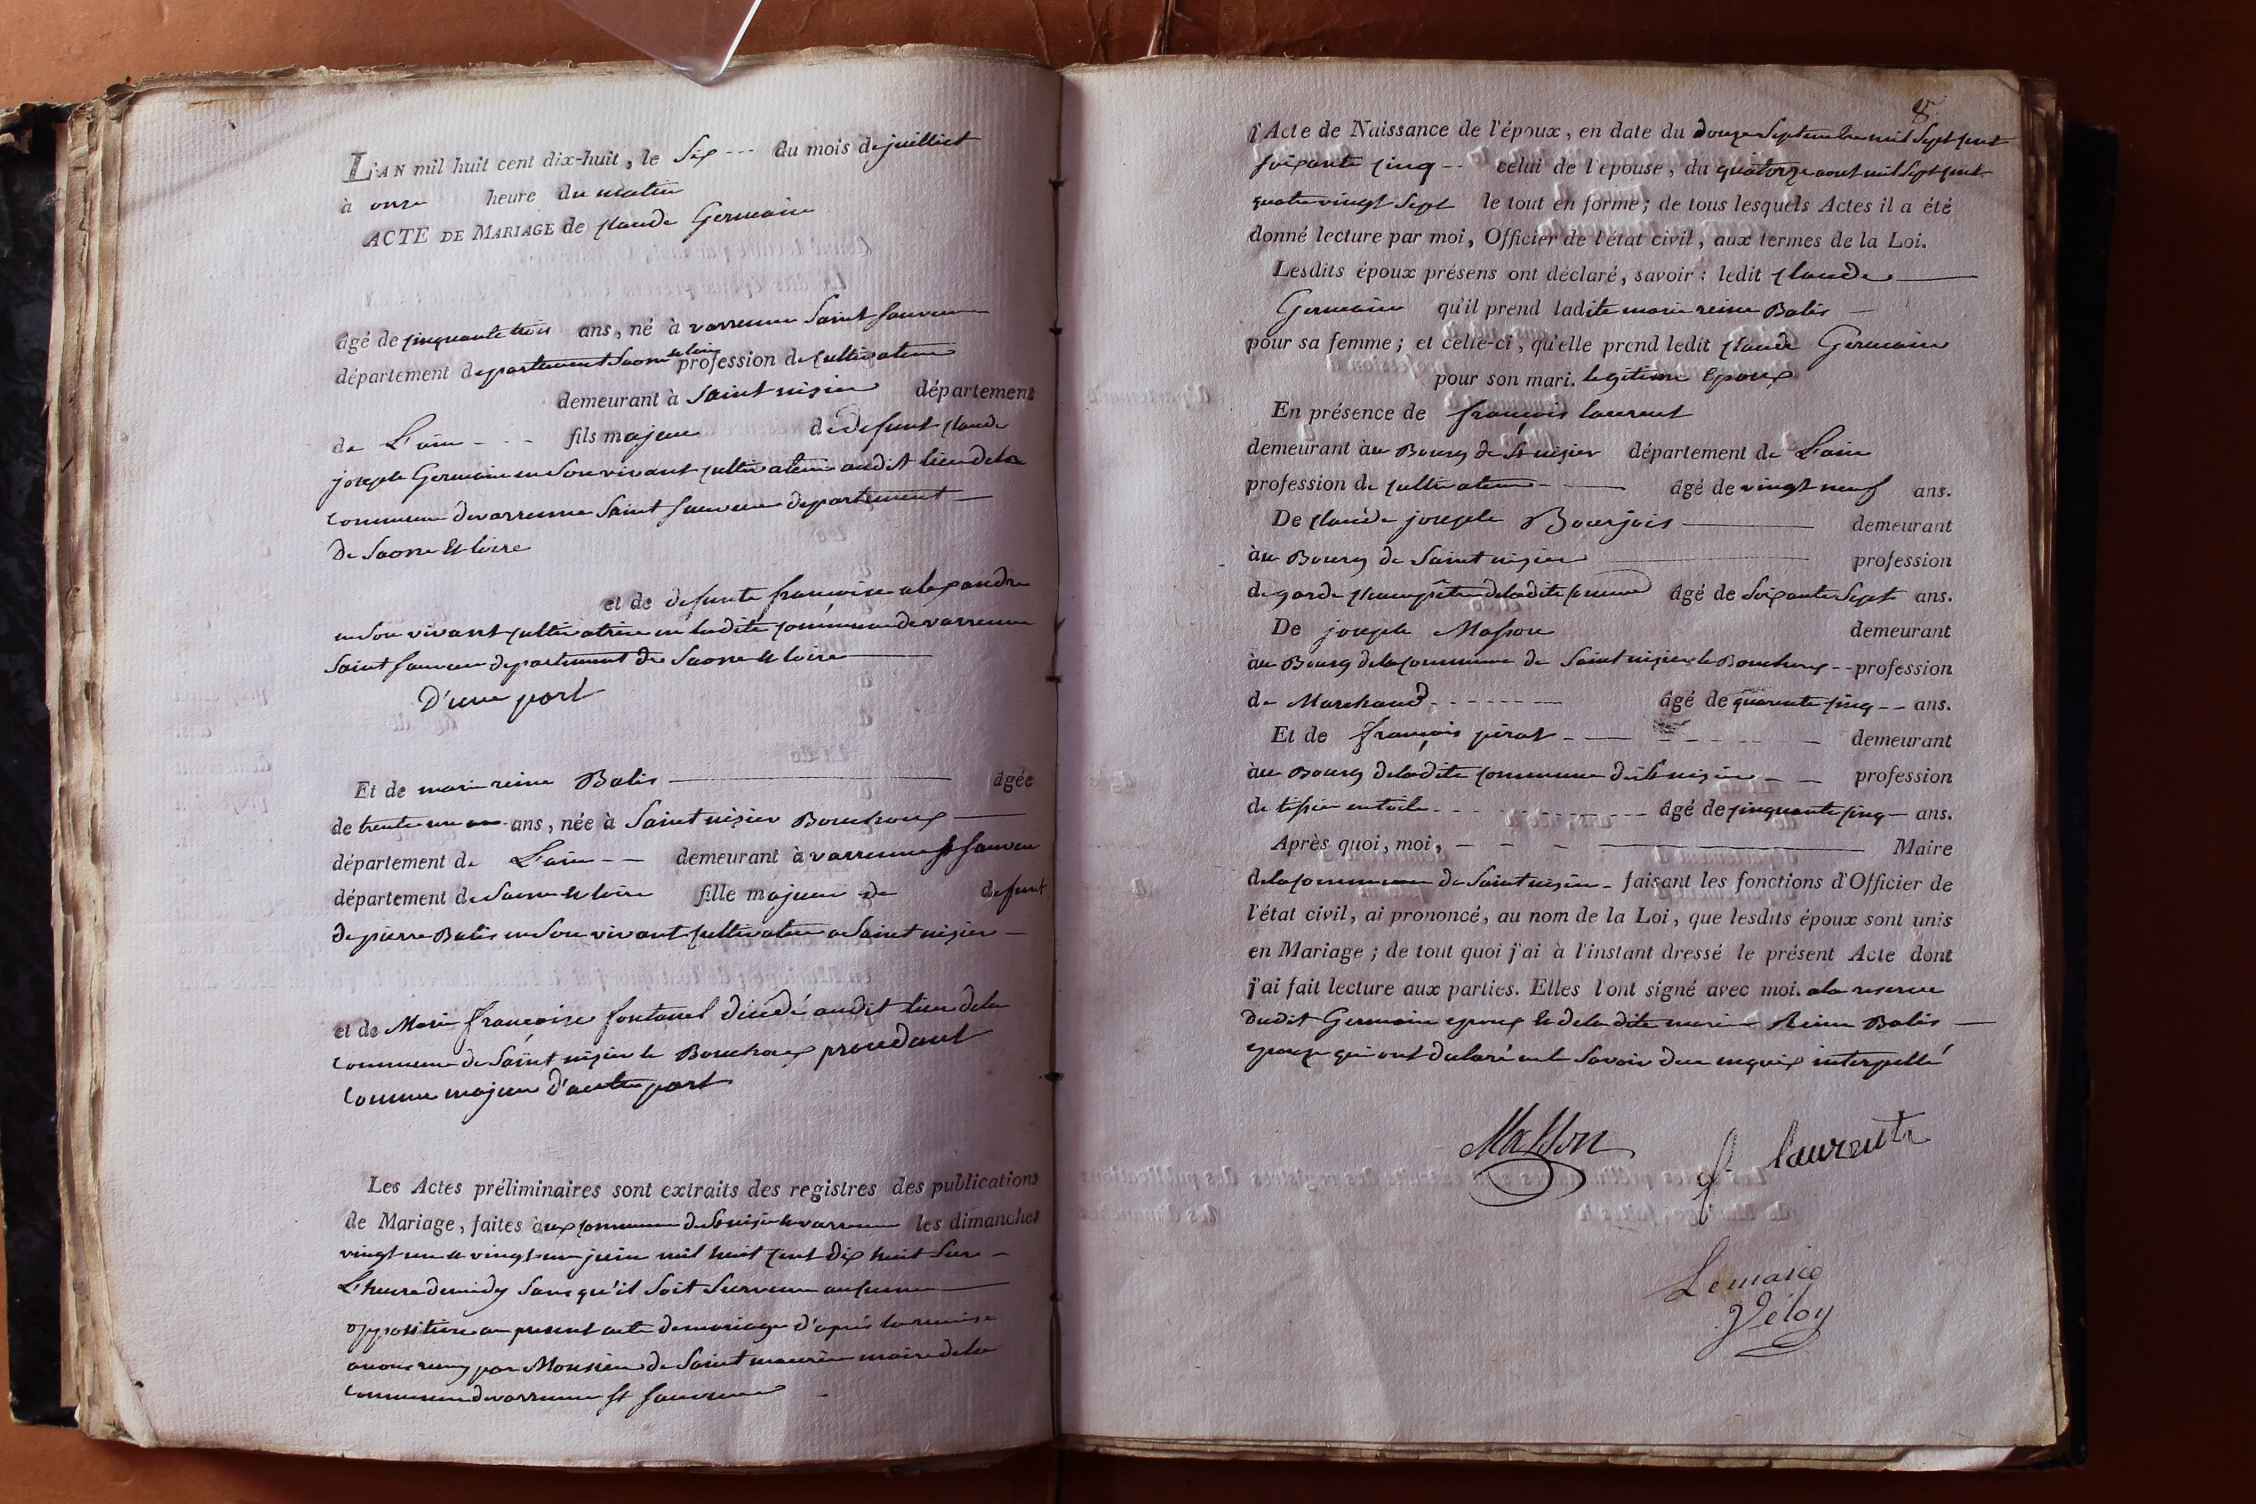 L'AN mil huit cent dix-huit, le Six --- du mois de juilliet
à onze heure du matin
ACTE DE MARIAGE de Claude Germain
âgé de cinquante trois ans, né à varenne Saint Sauveur
département departement Saone et loire profession de cultivateur
demeurant à Saint nizier département
de L'ain - - - fils majeur de defunt Claude
joseph Germain en Son vivant cultivateur audit lieu de la
commune de varenne Saint Sauveur departement —
de Saone Et loire
et de defunte françoise alexandre
en Son vivant cultivatrice en ladite commune de varenne
Saint Sauveur departement de Saone et loire
D'une part
Et de marie reine Balis — âgée
de trente un ans, née à Saint nizier Bouchoux —
département de L'ain -- demeurant à varenne St Sauveur
département de Saone et loire fille majeur de defunt
de pierre Balis en Son vivant cultivateur a Saint nizier —
et de Marie françoise fontanel décédé audit lieu de la
commune de Saint nizier le Bouchoux procedant
comme majeur d'autre part
Les Actes préliminaires sont extraits des registres des publications
de Mariage, faites aux commune de St nizier et varenne les dimanches
vingt un et vingt juin mil huit cent dix huit Sur —
L'heure de midy Sans qu'il Soit Survenu aucune
opposition au present acte de mariage d'après la remise
avons reçu par Monsieur de Saint maurice maire de la
commune de varenne St Sauveur
5
l'Acte de Naissance de l'époux, en date du douze Septembre mil Sept cent
Soixante cinq -- celui de l'epouse, du quatorze aout mil Sept cent
quatre vingt Sept le tout en forme; de tous lesquels Actes il a été
donné lecture par moi, Officier de l'état civil, aux termes de la Loi.
Lesdits époux présens ont déclaré, savoir: ledit Claude —
Germain qu'il prend ladite marie reine Balis —
pour sa femme; et celle-ci, qu'elle prend ledit Claude Germain
pour son mari. legitime Epoux
En présence de françois laurent
demeurant au Bourg de St nizier département de L'ain
profession de cultivateur - — âgé de vingt neuf ans.
De Claude joseph Bourjois — demeurant
au Bourg de Saint nizier — profession
de garde champêtre de ladite commune âgé de Soixante Sept ans.
De joseph Masson demeurant
au Bourg de la commune de Saint nizier le Bouchoux -- profession
de Marchand - - - - âgé de quarante cinq -- ans.
Et de françois pirat - — - - - demeurant
au Bourg de ladite commune de St nizier - — profession
de tissier en toile - - - - - âgé de cinquante cinq — ans.
Après quoi, moi, — - - — Maire
de la commune de Saint nizier - faisant les fonctions d'Officier de
l'état civil, ai prononcé, au nom de la Loi, que lesdits époux sont unis
en Mariage; de tout quoi j'ai à l'instant dressé le présent Acte dont
j'ai fait lecture aux parties. Elles l'ont signé avec moi. a la reserve
dudit Germain epoux Et de ladite marie Reine Balis —
epouze qui ont declaré ne le Savoir de ce enquis interpellé
Masson
f laurent
Le maire
Véloy